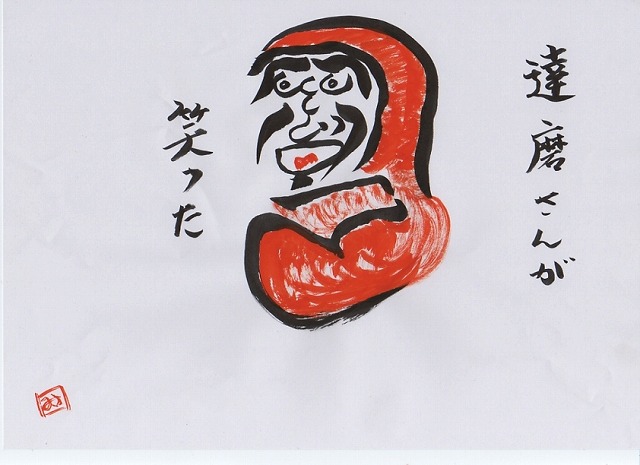 達磨さんが
笑った